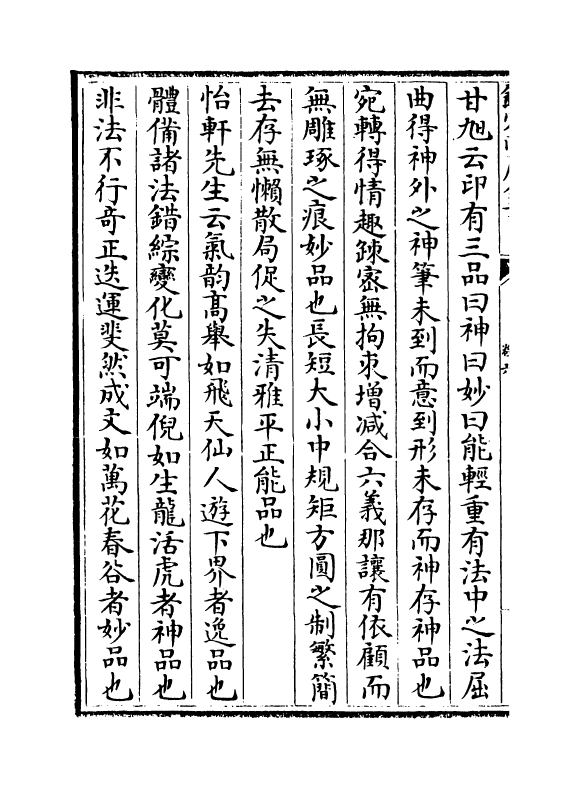 甘旭云印有三品曰神曰妙曰能輕重有法中之法屈
曲得神外之神筆未到而意到形未存而神存神品也
宛轉得情趣踈宻無拘朿增减合六義那讓有依顧而
無雕琢之痕妙品也長短大小中規矩方圓之制繁簡
去存無懶散局促之失清雅平正能品也
怡軒先生云氣韵髙舉如飛天仙人遊下界者逸品也
體備諸法錯綜變化莫可端倪如生龍活虎者神品也
非法不行竒正迭運斐然成文如萬花春谷者妙品也